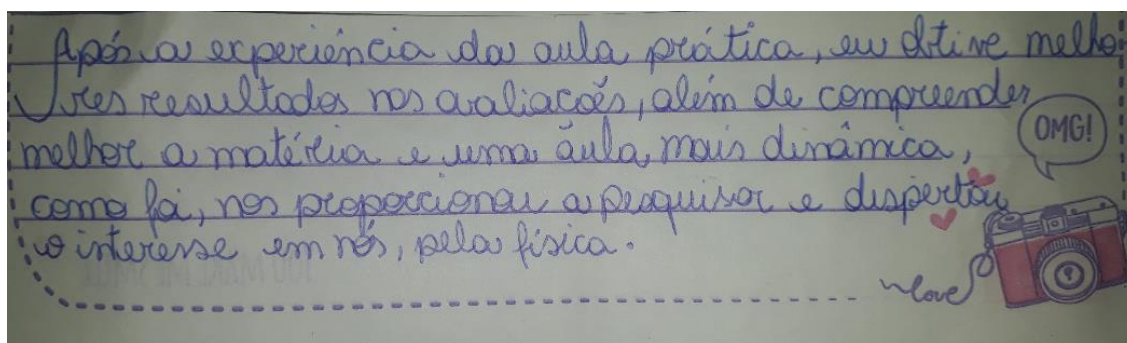 Após a experiência da aula prática, eu obtive melho-
res resultados nas avaliacões, além de compreender
melhor a matéria e uma aula, mais dinâmica,
como foi, nos proporcionou a pesquisar e despertou
o interesse em nós, pela física.
OMG!
love